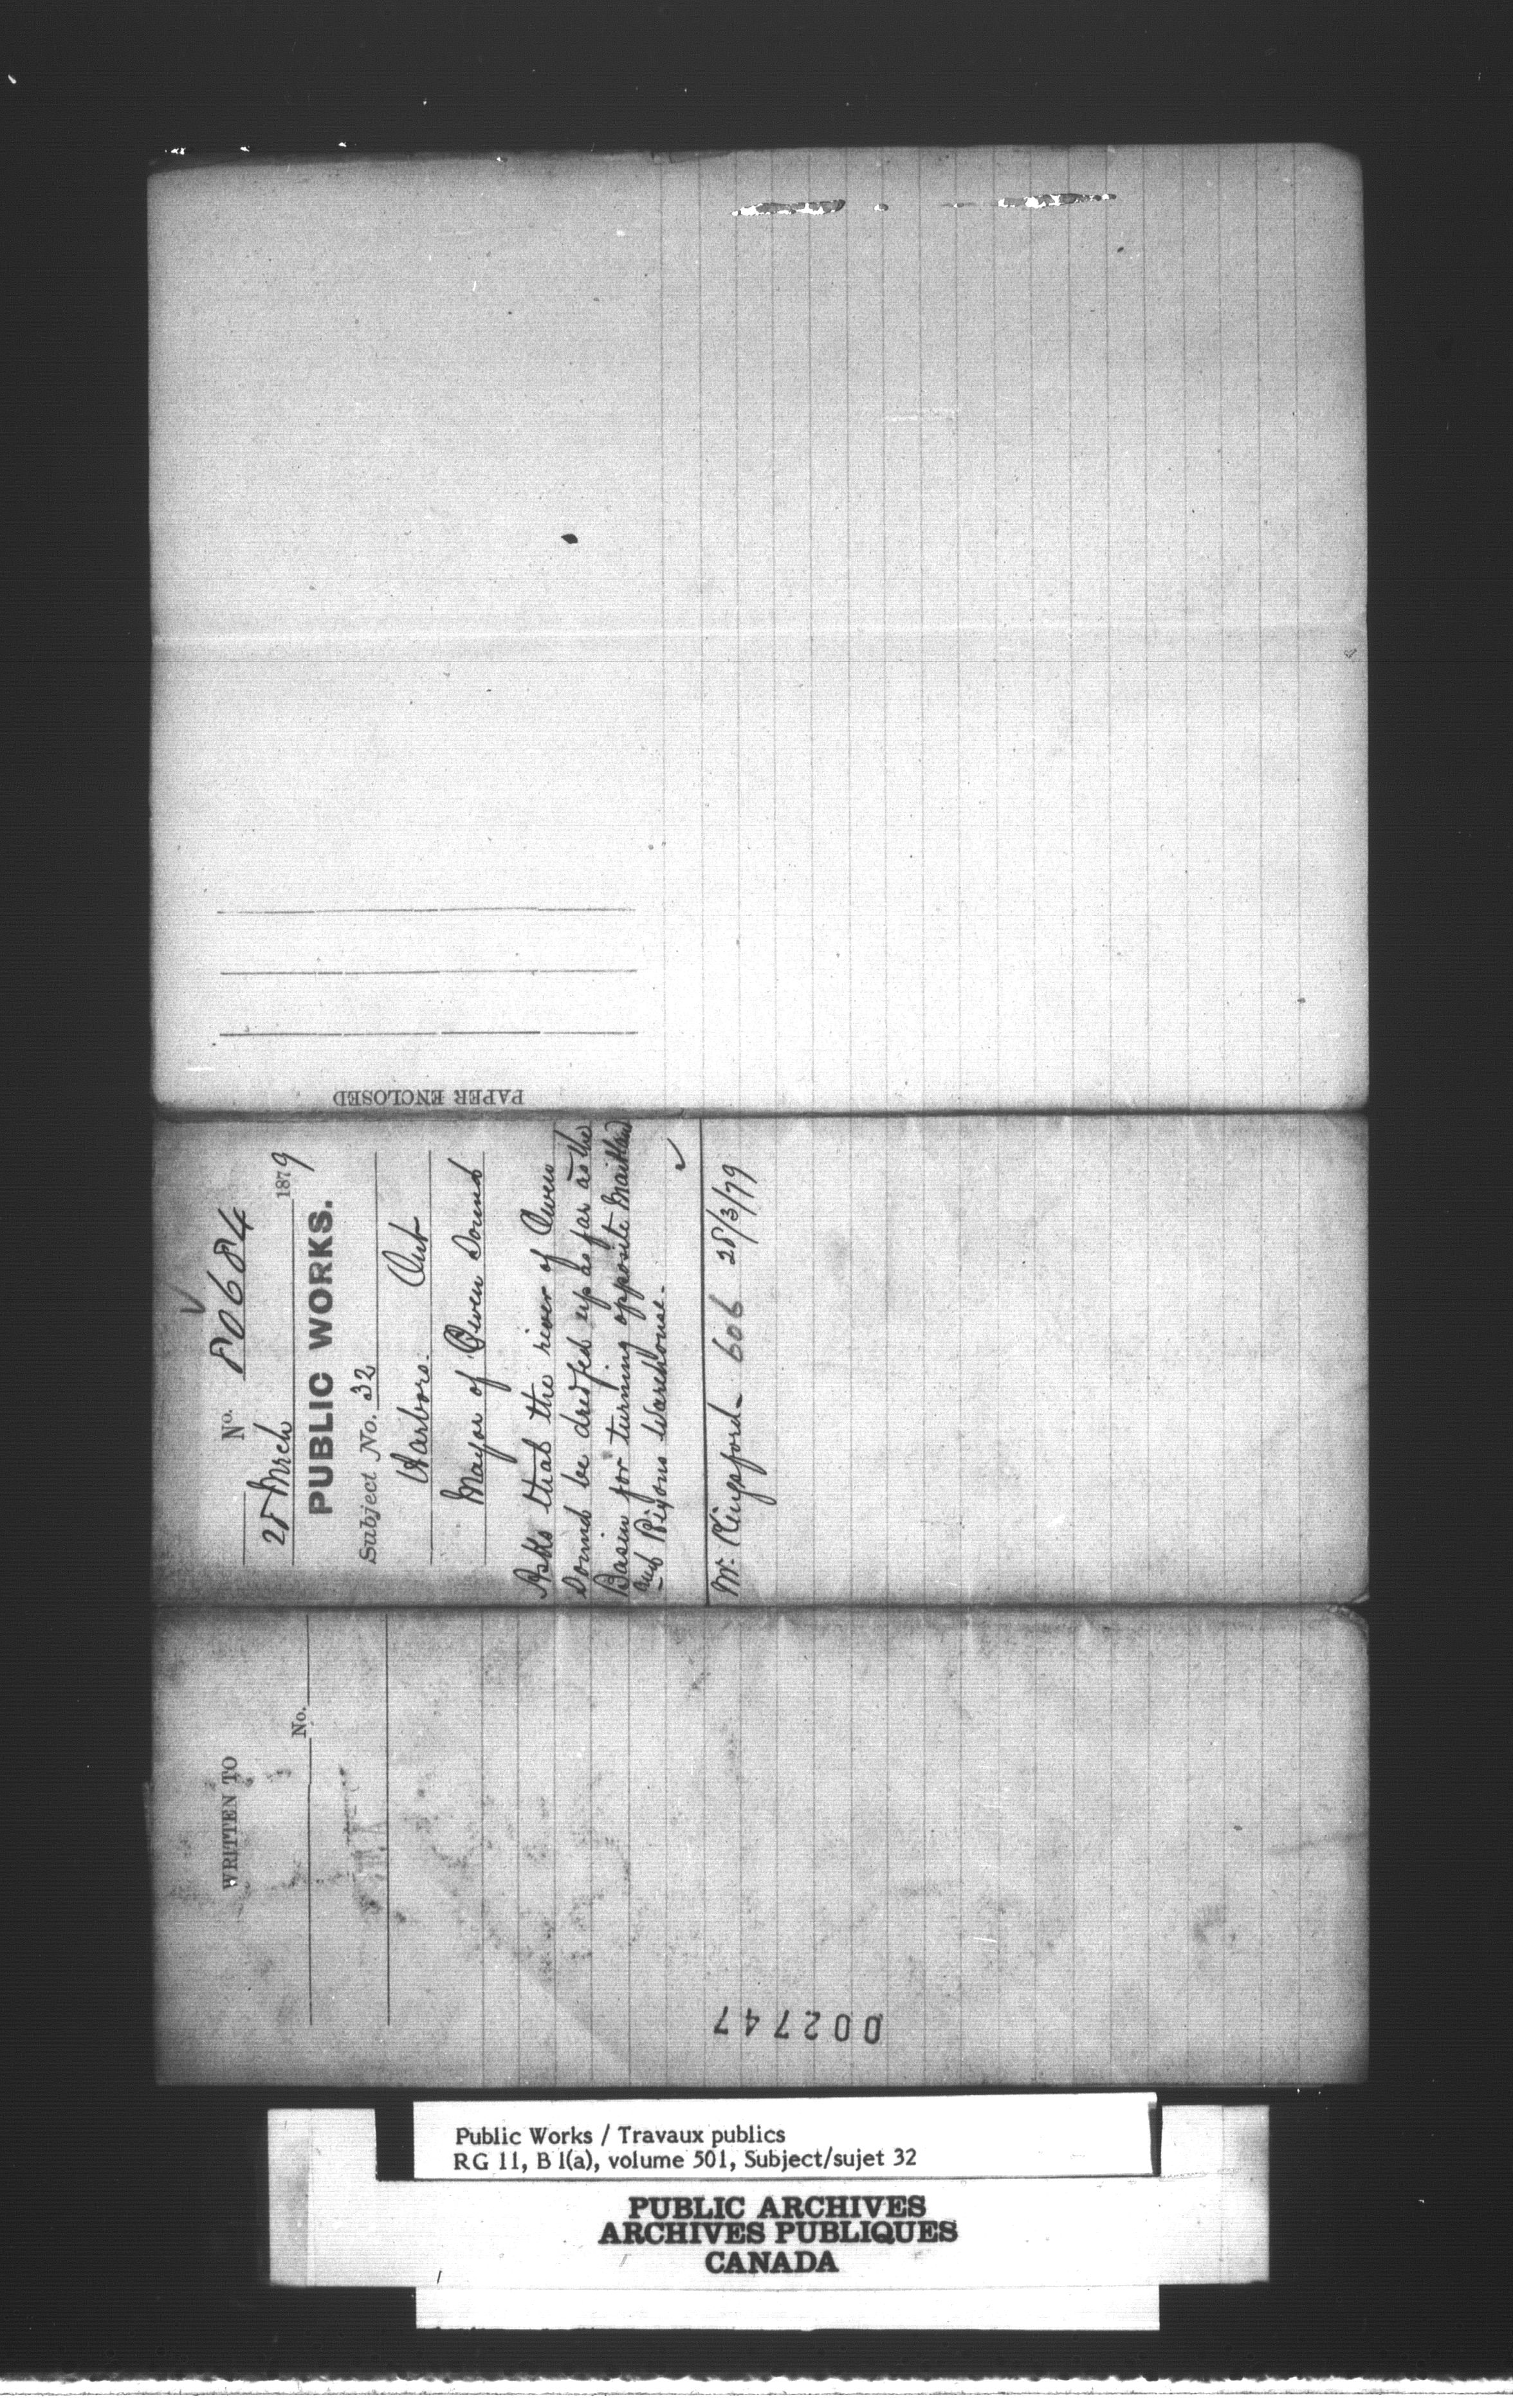 PAPER ENCLOSED
No. 80684
28 Mrch 1879
PUBLIC WORKS.
Subject No. 32
Harbors. Ont
Mayor of Owen Sound
Asks that the river of Owen
Sound be dredged up as far as the
Basin for turning opposite Maitland
and Rixons Warehouse.
Mr. Kingsford 606 28/3/79
WRITTEN TO
No.
002747
Public Works / Travaux publics
RG 11, B 1(a), volume 501, Subject/sujet 32
PUBLIC ARCHIVES
ARCHIVES PUBLIQUES
CANADA